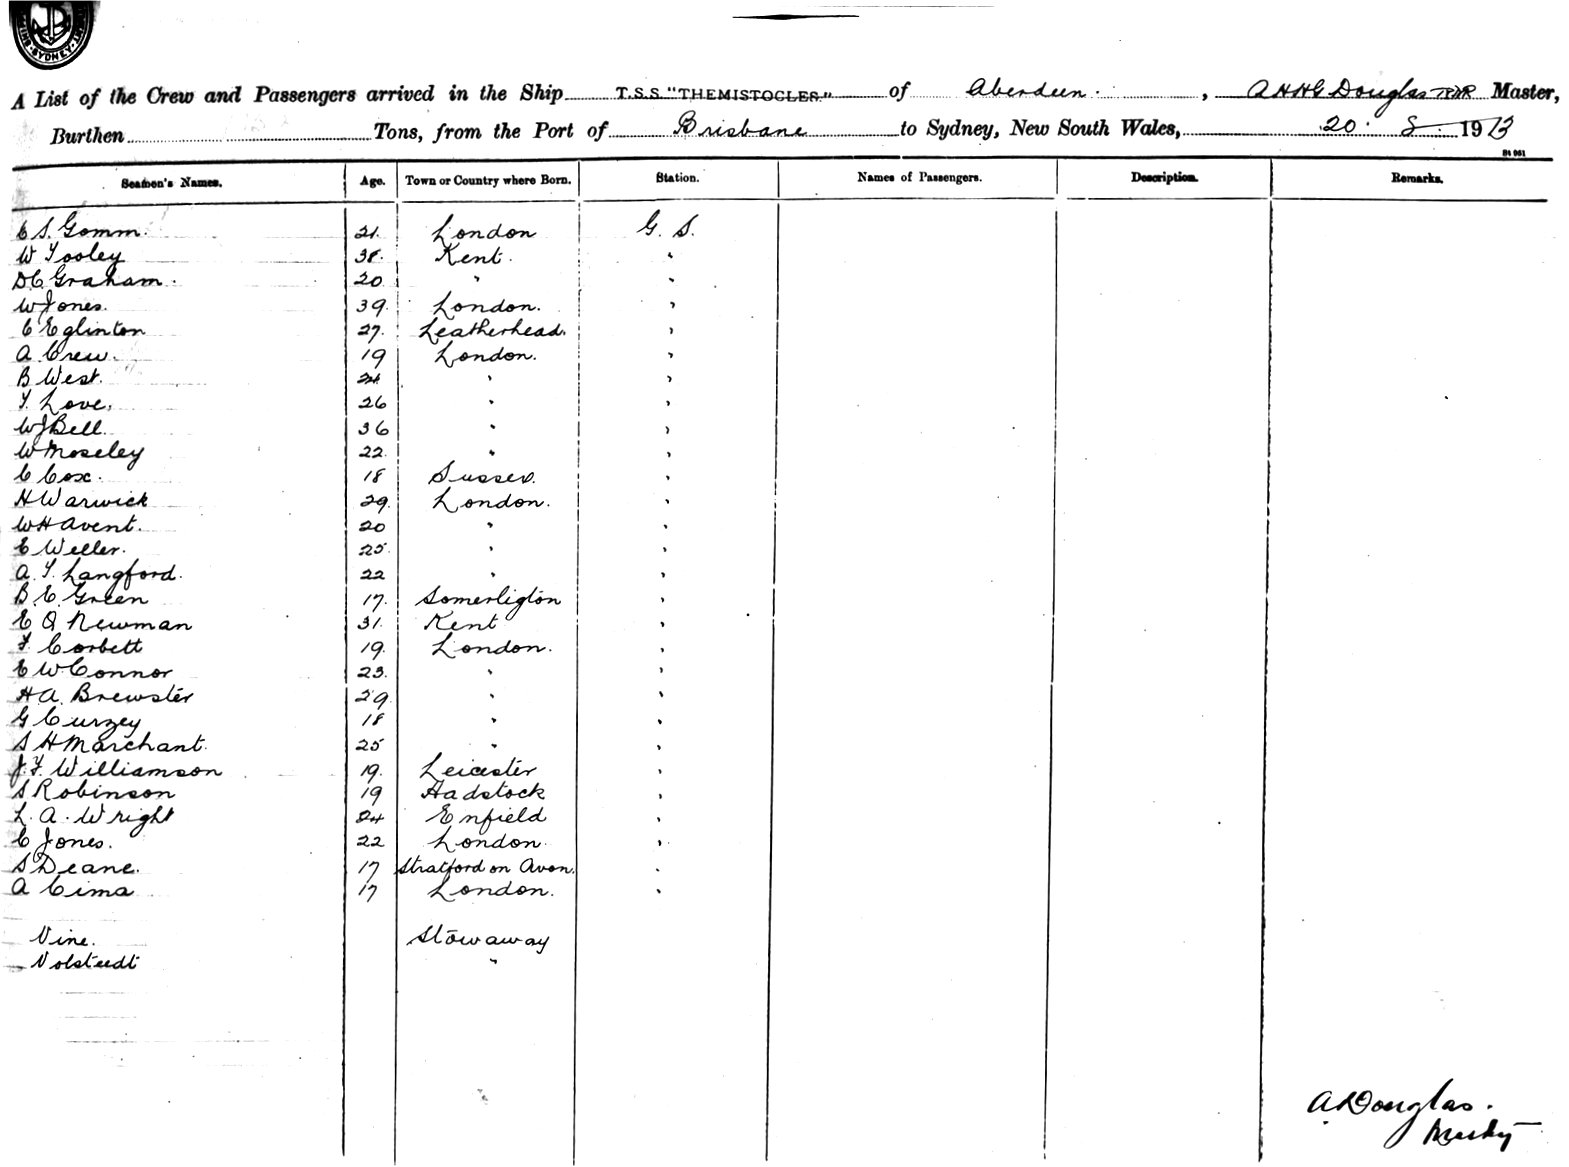 SYDNEY
A List of the Crew and Passengers arrived in the Ship T.S.S "THEMISTOCLES" of Aberdeen. , A H H G Douglas RNR Master,
Burthen Tons, from the Port of Brisbane to Sydney, New South Wales, 20. 8. 1913
Seamen's Names. Age. Town or Country where Born. Station. Names of Passengers. Description. Remarks.
C S. Gomm. 21. London G. S.
W Tooley 38. Kent. "
D C Graham. 20 " "
W Jones. 39. London. "
C Eglinton 27. Leatherhead. "
A Crew. 19 London. "
B West. 21 " "
F. Love. 26 " "
W J Bell. 36 " "
W Moseley 22. " "
C Cox. 18 Sussex. "
H Warwick 29. London. "
W H Avent. 20 " "
E Weller. 25. " "
A. F. Langford. 22 " "
B. E. Green 17. Somerligton "
E Q Newman 31. Kent "
F. Corbett 19. London. "
E W Connor 23. " "
H A. Brewster 29. " "
G Curzey 18 " "
S H Marchant. 25 " "
J. F. Williamson 19. Leicester "
S Robinson 19 Hadstock "
L. A. Wright 24 Enfield "
C Jones. 22 London. "
S Deane. 17 Stratford on Avon. "
A Cima 17 London. "
Vine. Stowaway
Volsteedt "
A Douglas.